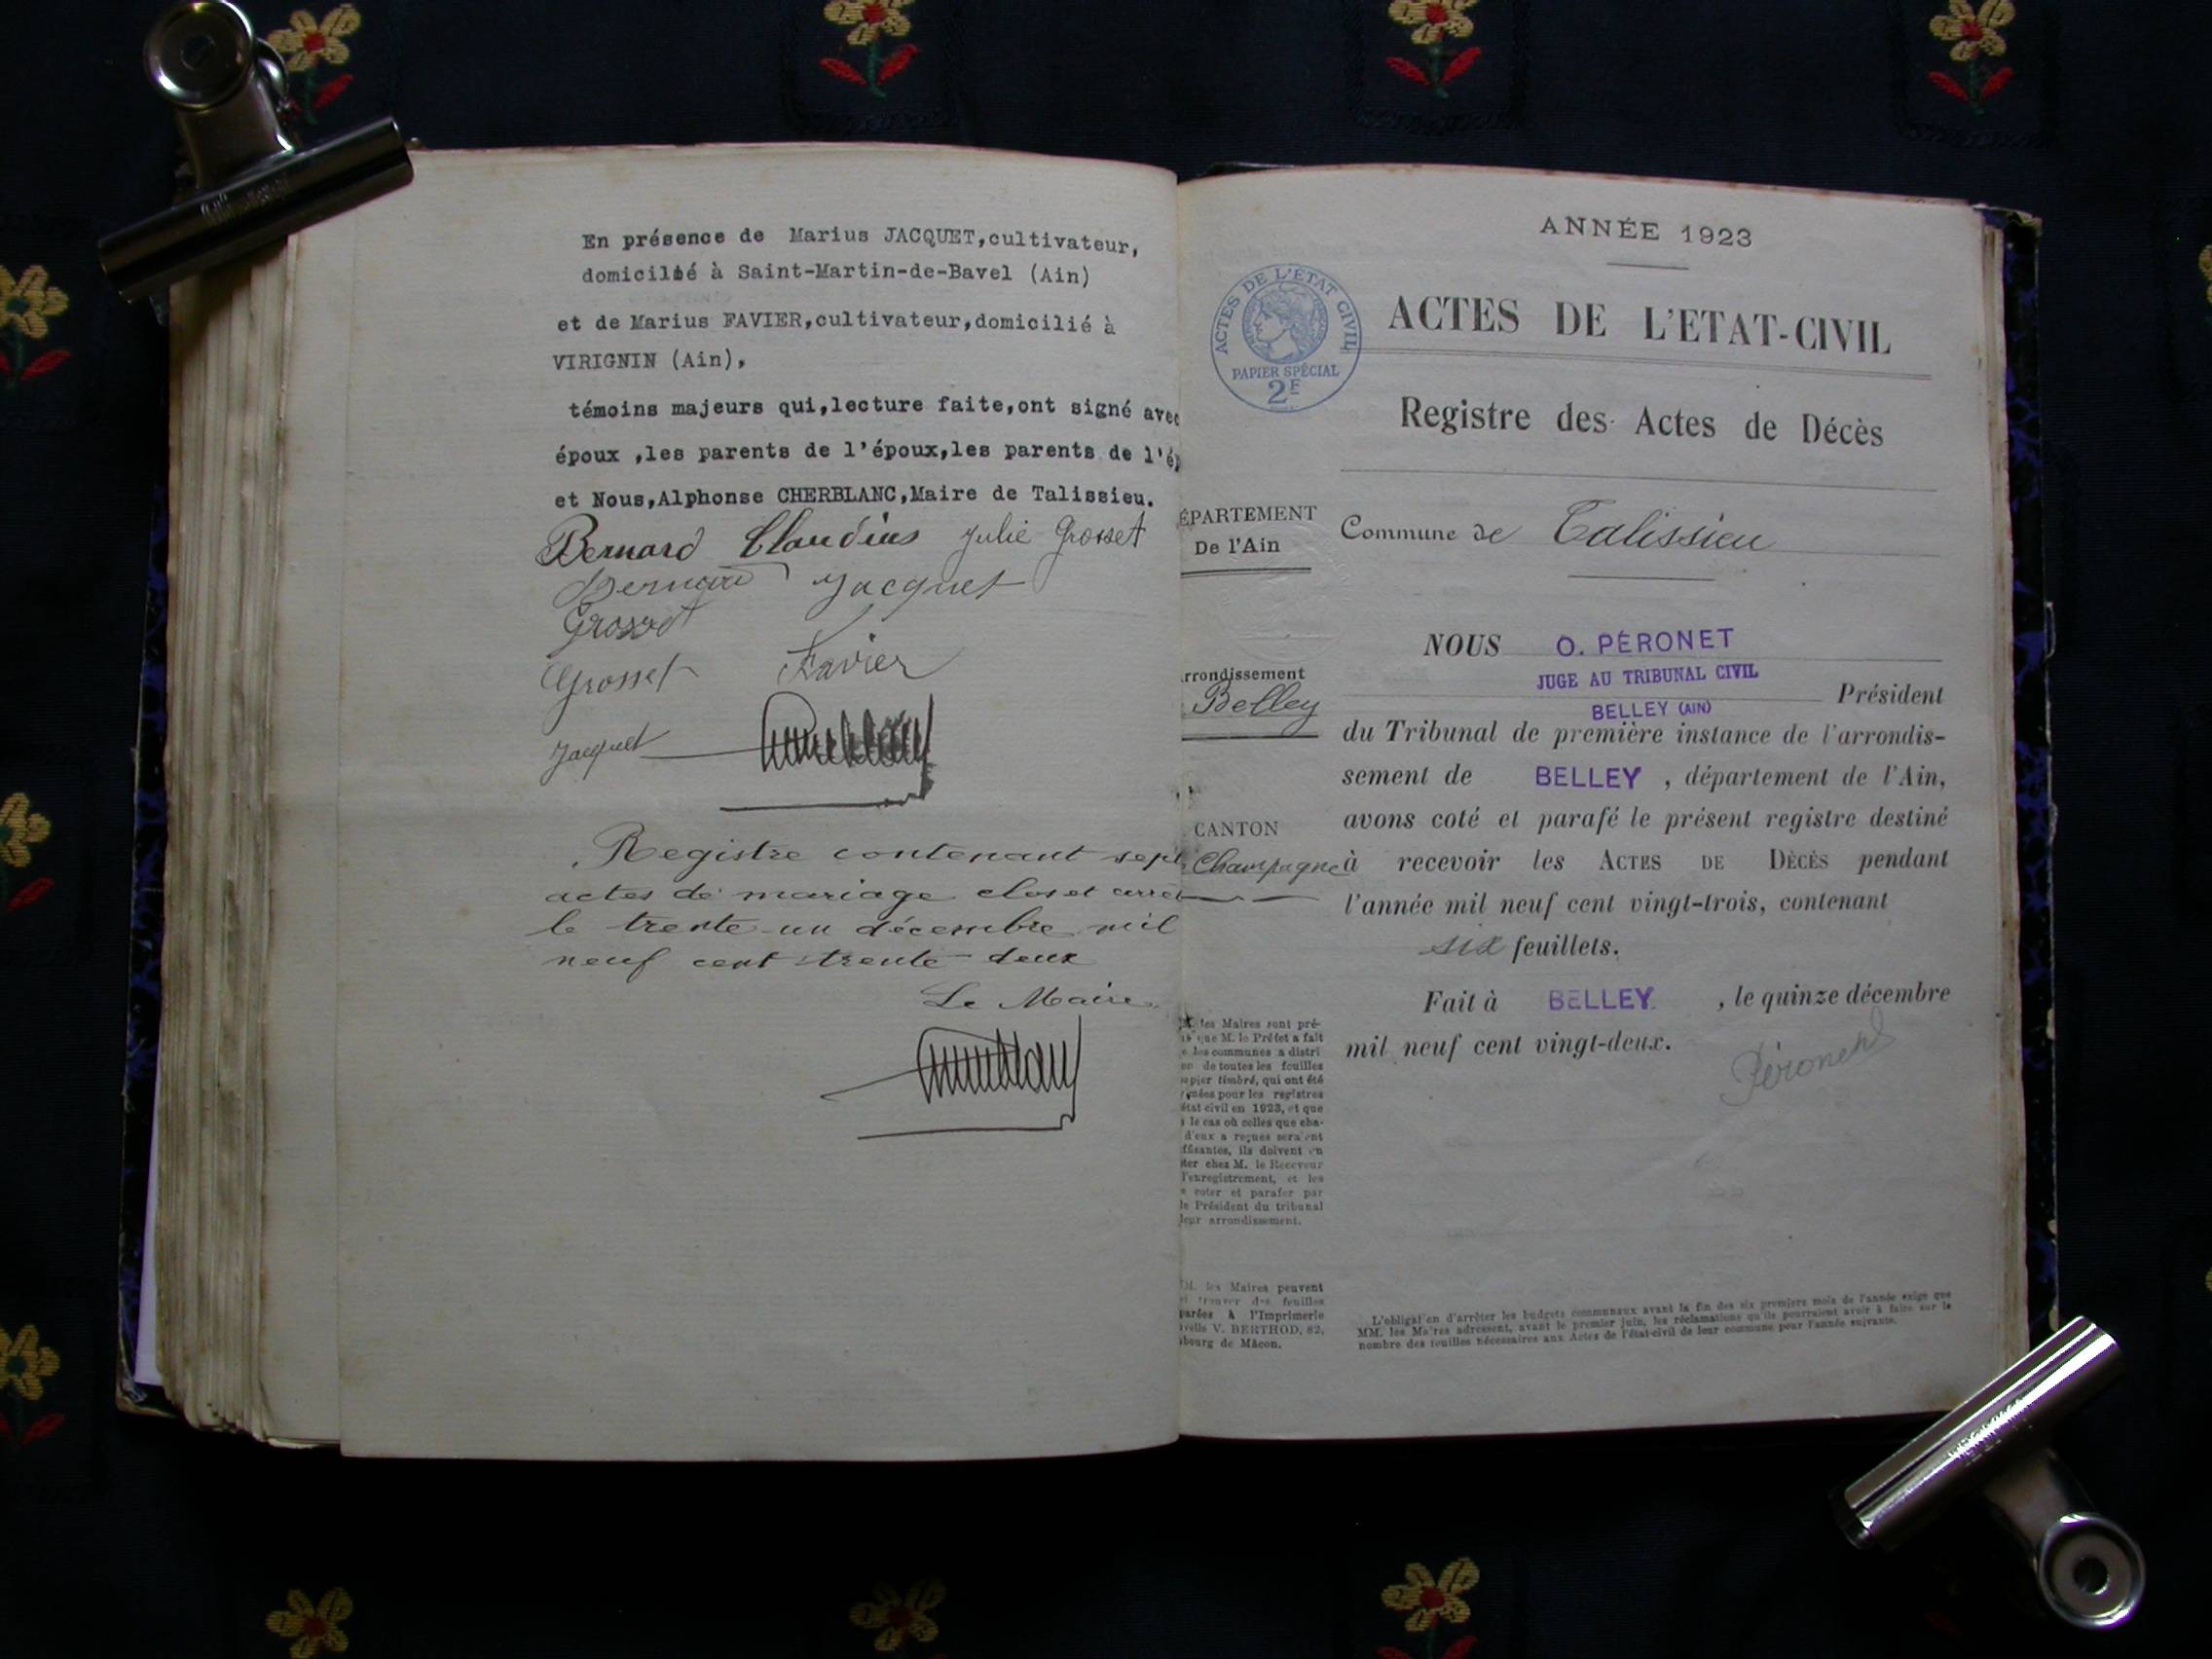 En présence de Marius JACQUET,cultivateur,
domicilié à Saint-Martin-de-Bavel (Ain)
et de Marius FAVIER,cultivateur,domicilié à
VIRIGNIN (Ain),
témoins majeurs qui,lecture faite,ont signé avec
époux ,les parents de l'époux,les parents de l'é
et Nous,Alphonse CHERBLANC,Maire de Talissieu.
Bernard Claudius Julie Grosset
Bernard Jacquet
Grosset
Grosset Favier
Jacquet
Registre contenant sept
actes de mariage clos et arrêt
le trente-un décembre mil
neuf cent trente-deux
Le Maire
ANNÉE 1923
ACTES DE L'ÉTAT CIVIL
PAPIER SPÉCIAL
2F
ACTES DE L'ETAT-CIVIL
Registre des Actes de Décès
ÉPARTEMENT
De l'Ain
Commune de Talissieu
rrondissement
Belley
CANTON
Champagne
NOUS O. PÉRONET
JUGE AU TRIBUNAL CIVIL
Président
BELLEY (AIN)
du Tribunal de première instance de l'arrondis-
sement de BELLEY , département de l'Ain,
avons coté et parafé le présent registre destiné
à recevoir les ACTES DE DÉCÈS pendant
l'année mil neuf cent vingt-trois, contenant
six feuillets.
Fait à BELLEY , le quinze décembre
mil neuf cent vingt-deux.
Péronet
les Maires sont pré-
que M. le Préfet a fait
les communes a distri
de toutes les feuilles
apier timbré, qui ont été
mées pour les registres
état-civil en 1923, et que
le cas où celles que cha-
d'eux a reçues seraient
ffisantes, ils doivent en
ter chez M. le Receveur
l'enregistrement, et les
coter et parafer par
le Président du tribunal
leur arrondissement.
M. les Maires peuvent
trouver des feuilles
parées à l'Imprimerie
velle V. BERTHOD, 82,
bourg de Mâcon.
L'obligation d'arrêter les budgets communaux avant la fin des six premiers mois de l'année exige que
MM. les Maires adressent, avant le premier juin, les réclamations qu'ils pourraient avoir à faire sur le
nombre des feuilles nécessaires aux Actes de l'état-civil de leur commune pour l'année suivante.